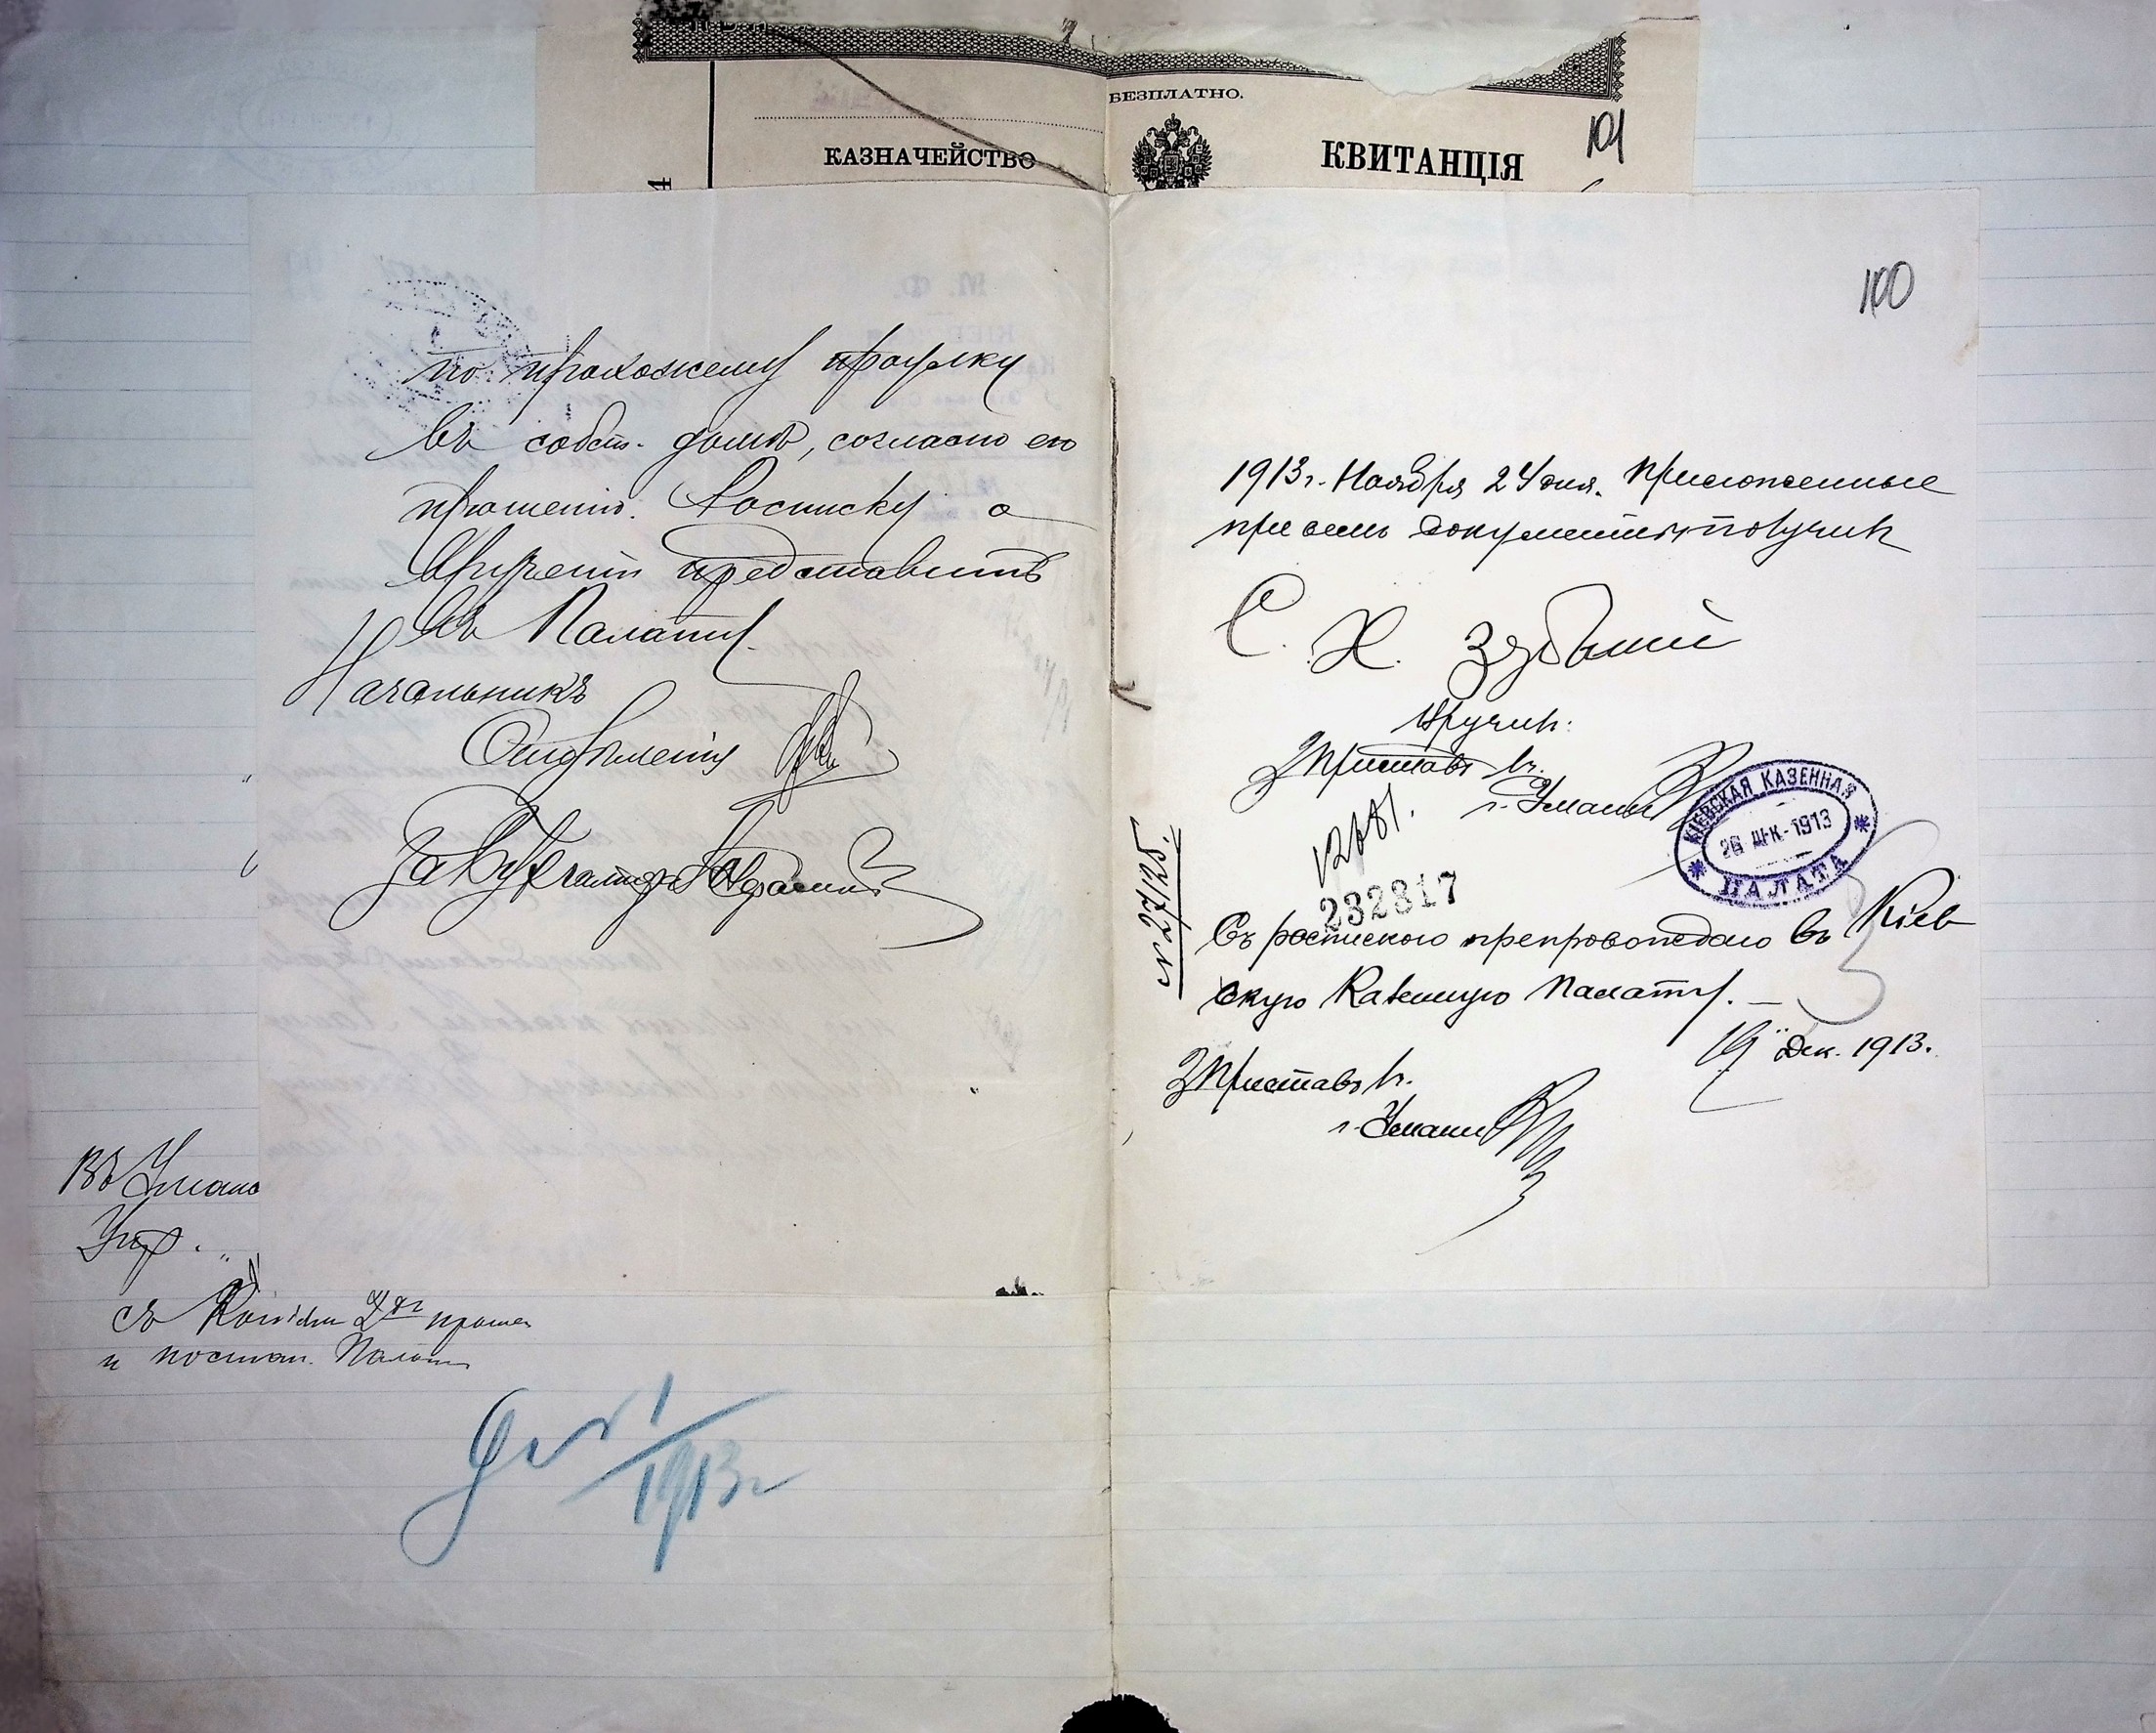 БЕЗПЛАТНО.
КАЗНАЧЕЙСТВО
КВИТАНЦІЯ
101
4
100
по прохожему проулку
въ собст. домѣ, согласно его
прошенію. Росписку о
врученіи представить
въ Палату.
Начальникъ
Отдѣленія
За Бухгалтера
1913 г. Ноября 24 дня. Приложенные
при семъ документы получилъ
С. Х. Зубатий
Вручилъ:
Приставъ
г. Умани
12681.
КІЕВСКАЯ КАЗЕННАЯ
26 ДЕК. 1913
ПАЛАТА
232817
№ 27125.
Съ роспискою препровождаю въ Кіев
скую Казенную Палату. —
19 Дек. 1913.
Приставъ
г. Умани
Въ Умано
Упр.
съ
и постан. Палаты
1
1913 г